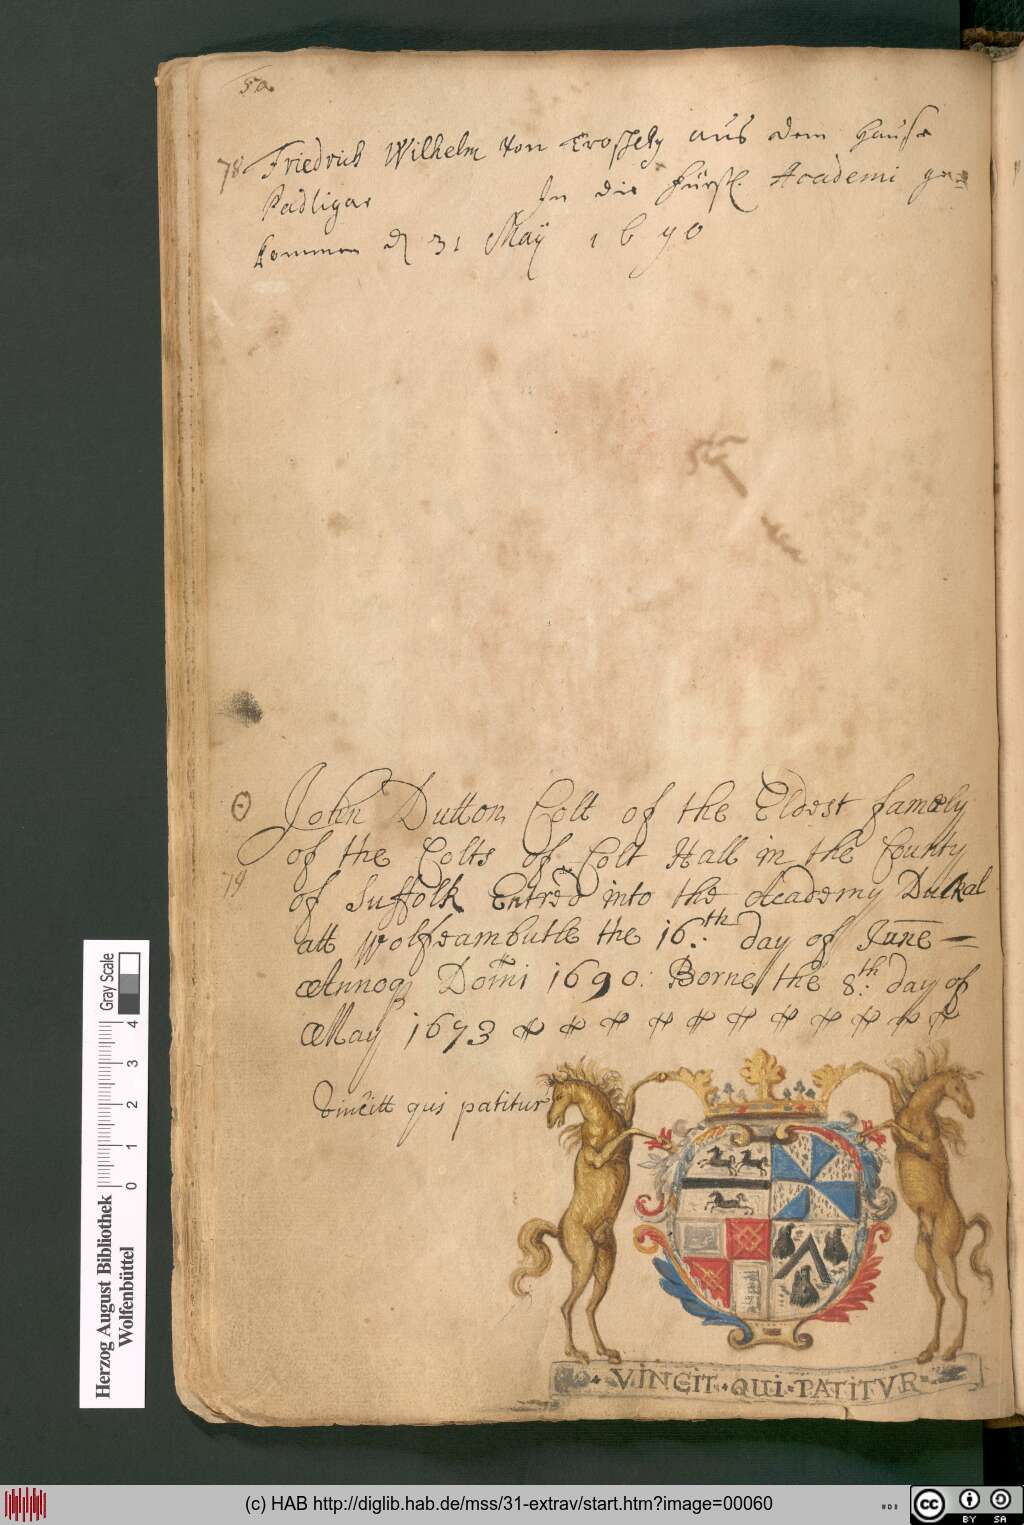 50.
78. Friedrich Wilhelm von Troschky aus dem Hause
Padligar In die fürstl. Academi ge-
kommen d 31 Maÿ 1690
John Dutton Colt of the Eldest famely
of the Colts of Colt Hall in the County
79 of Suffolk Entred into the Academy Duckal
att Wolfeambutle the 16th day of June
Annoq Domi 1690: Borne the 8th day of
May 1673
Vincitt qui patitur
VINCIT·QUI·PATITVR
Herzog August Bibliothek
Wolfenbüttel
Gray Scale
0 1 2 3 4
(c) HAB http://diglib.hab.de/mss/31-extrav/start.htm?image=00060
cc
BY SA